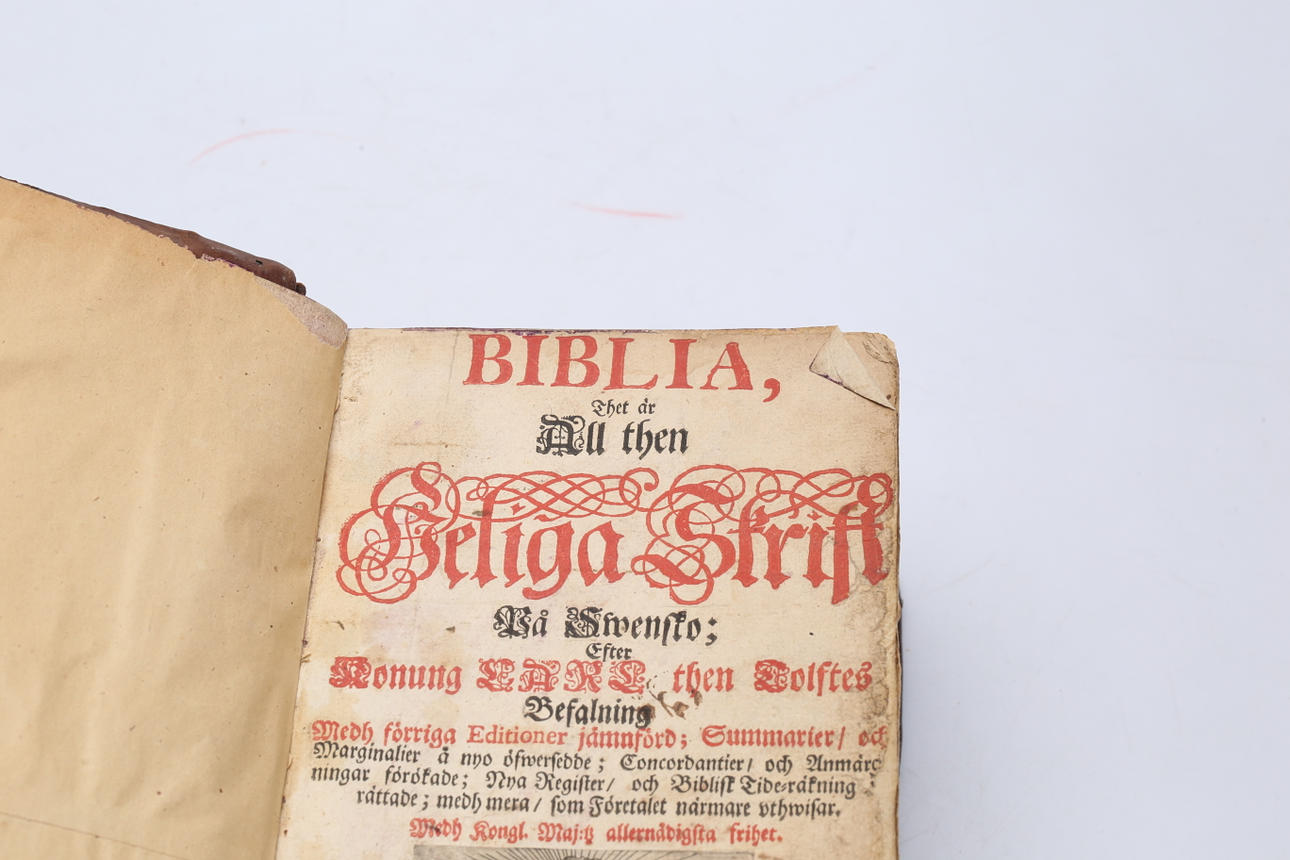 BIBLIA,
Thet är
All then
Heliga Skrift
På Swensko;
Efter
Konung CARL then Tolftes
Befalning
Medh förriga Editioner jämnförd; Summarier/ och
Marginalier å nyo öfwersedde; Concordantier/ och Anmärck-
ningar förökade; Nya Register/ och Biblisk Tide-räkning
rättade; medh mera/ som Företalet närmare vthwisar.
Medh Kongl. Maj:tz allernådigsta frihet.